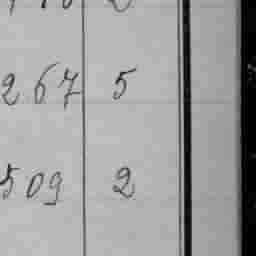 267 5
509 2